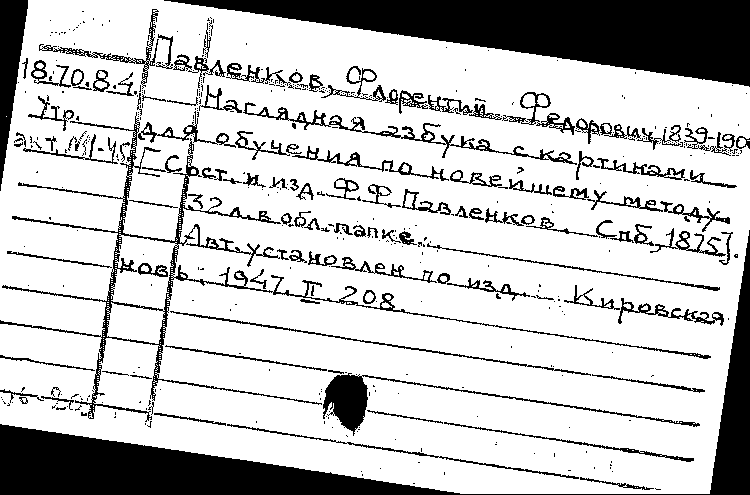 Павленков, Флорентий Федорович, 1839-190
18.70.8.4. Наглядная азбука с картинами
Утр. для обучения по новейшему методу.
акт. №1-45. [Сост. и изд. Ф.Ф. Павленков. Спб., 1875].
32 л. в обл.-папке.
Авт. установлен по изд.: Кировская
новь: 1947. II. 208.